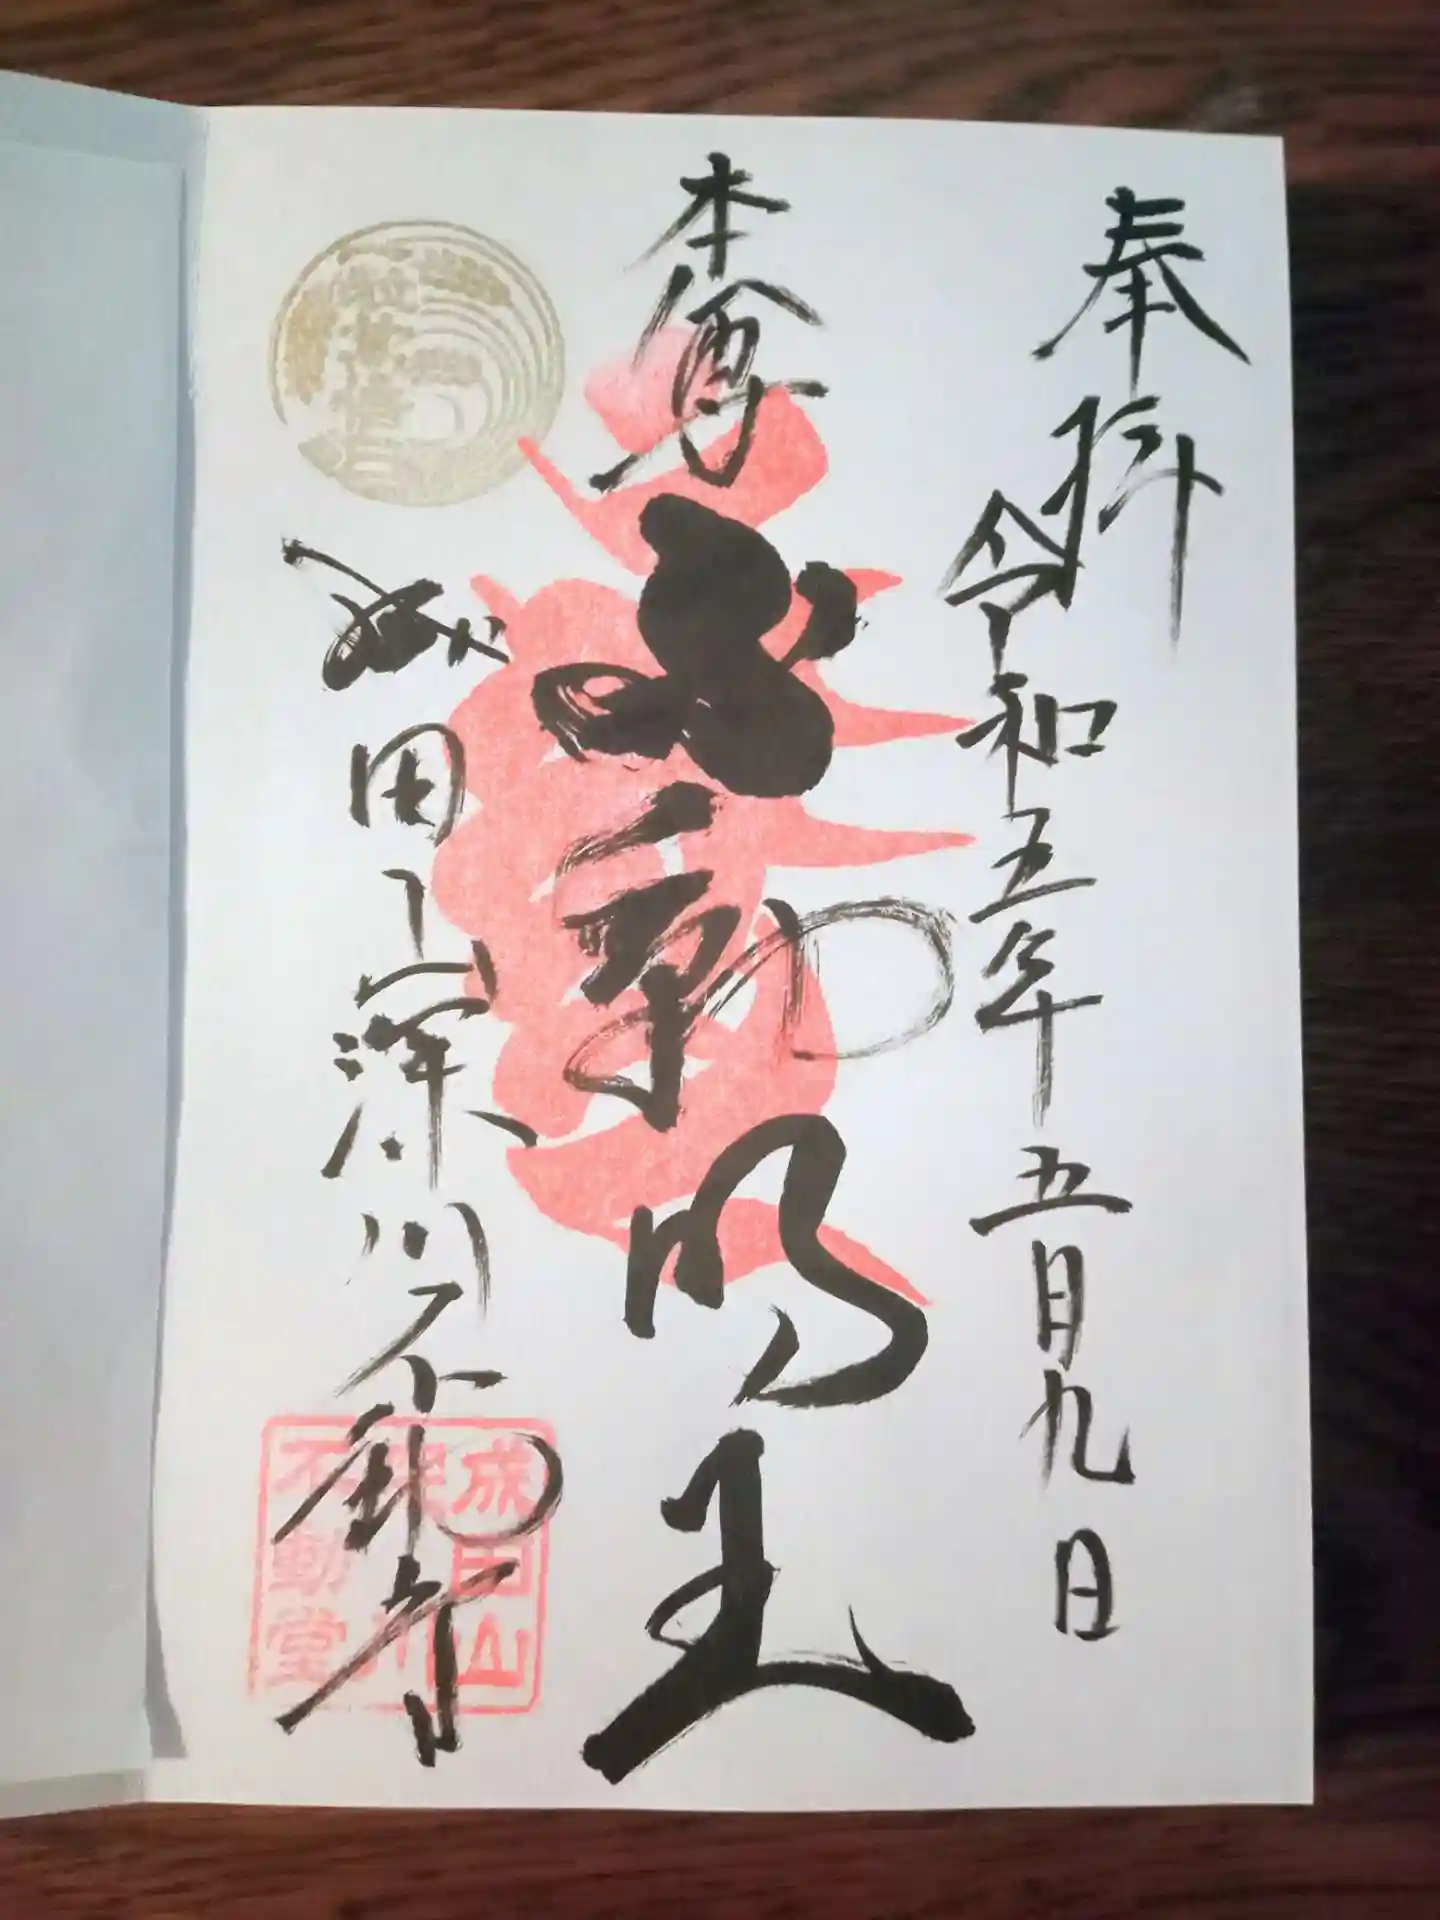 奉拝
令和五年五月九日
本尊
不動明王
成田山深川不動尊
成田山
不動堂